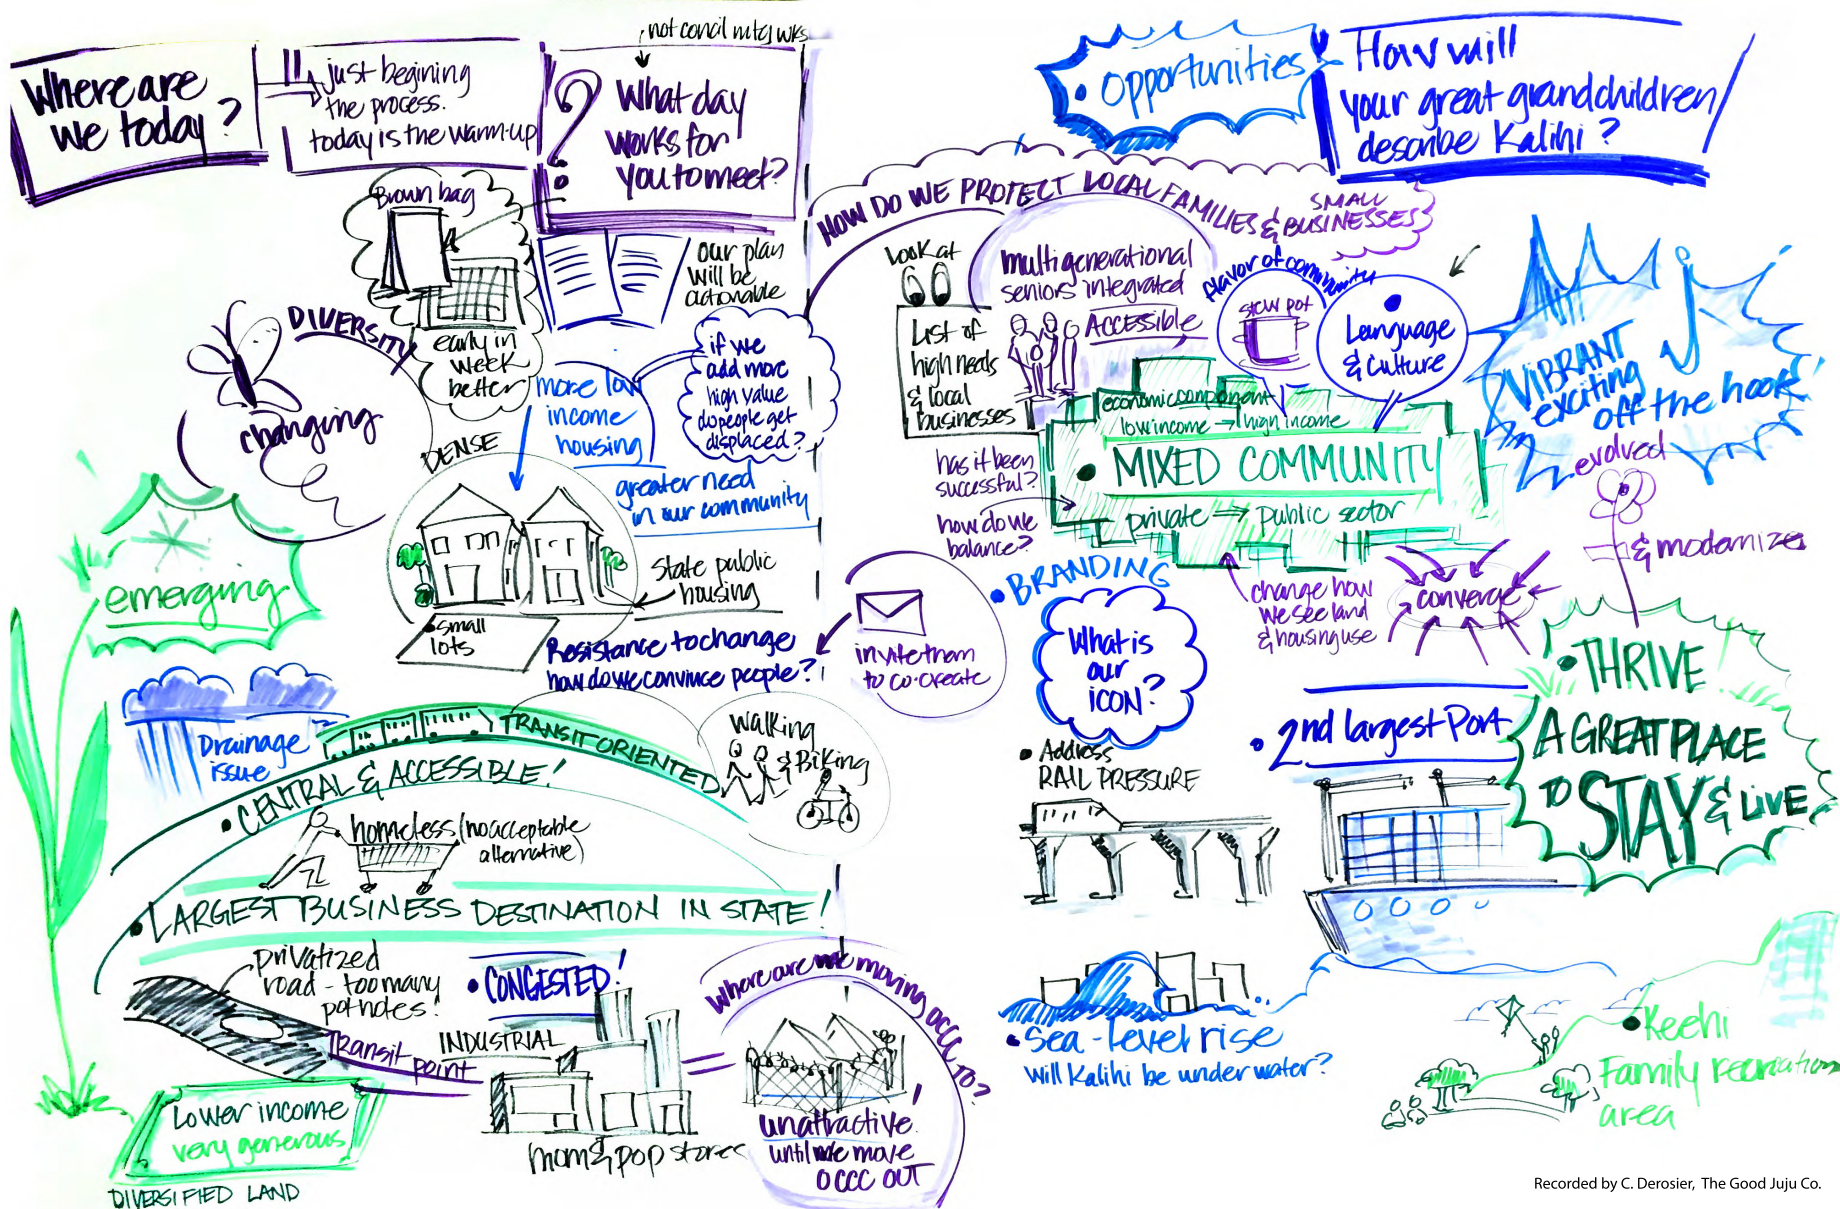 Where are
we today?
just begining
the process.
today is the warm-up
not concil mtg wks
?
What day
works for
you to meet?
Brown bag
early in
week
better
our plan
will be
actionable
DIVERSITY
changing
DENSE
more low
income
housing
if we
add more
high value
do people get
displaced?
greater need
in our community
emerging
State public
housing
small
lots
Resistance to change
how do we convince people?
Drainage
issue
TRANSIT ORIENTED
Walking
& BiKing
CENTRAL & ACCESSIBLE!
homeless (no acceptable
alternative)
LARGEST BUSINESS DESTINATION IN STATE!
privatized
road - too many
potholes!
Transit
point
CONGESTED!
INDUSTRIAL
mom & pop stores
Lower income
very generous
DIVERSIFIED LAND
Where are we moving OCCC TO?
unattractive!
until we move
OCCC OUT
Opportunities
How will
your great grandchildren
describe Kalihi?
HOW DO WE PROTECT LOCAL FAMILIES &
SMALL
BUSINESSES
Look at
List of
high needs
& local
businesses
multigenerational
seniors integrated
ACCESSIBLE
flavor of community
stew pot
Language
& Culture
VIBRANT
exciting
off the hook
evolved
& modernize
economic component
low income → high income
MIXED COMMUNITY
private ⇒ public sector
has it been
successful?
how do we
balance?
change how
we see land
& housing use
converge
invite them
to co-create
BRANDING
What is
our
icon?
Address
RAIL PRESSURE
2nd largest Port
THRIVE
A GREAT PLACE
TO STAY & LiVE
Sea-Level rise
will Kalihi be under water?
Keehi
Family recreation
area
Recorded by C. Derosier, The Good Juju Co.